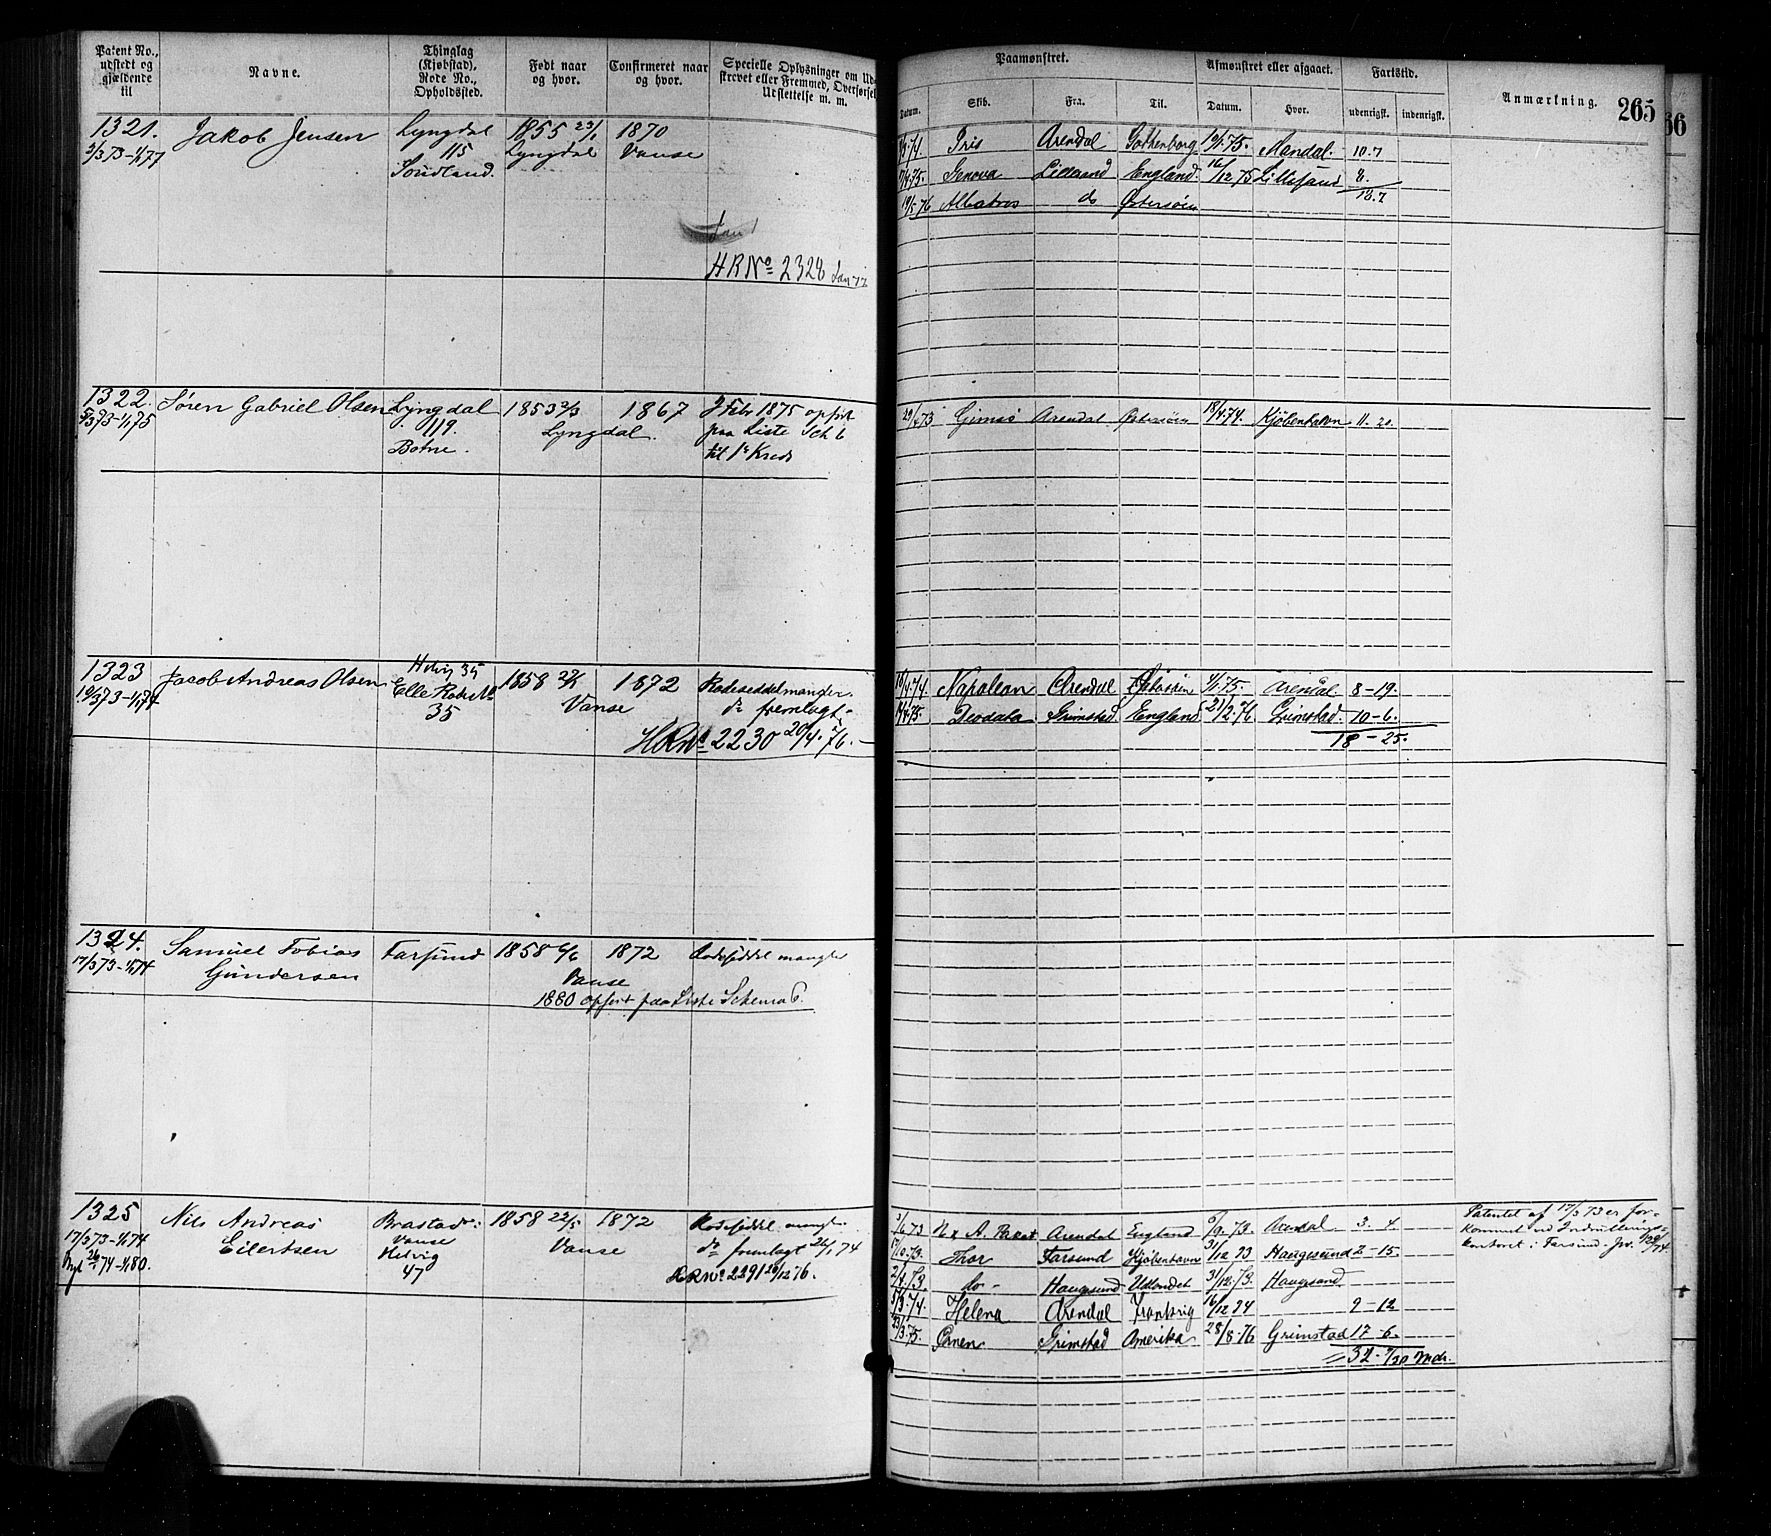 Patent No., udstedt og gjældende til
Navne.
Thinglag (Kjøbstad), Rode No., Opholdssted.
Født naar og hvor.
Confirmeret naar og hvor.
Specielle Oplysninger om Ud-
skrevet eller Fremmed, Overførsel
Udslettelse m. m.
Paamønstret.
Datum.
Skib.
Fra.
Til.
Afmønstret eller afgaaet.
Datum.
Hvor.
Fartstid.
udenrigsk.
indenrigsk.
Anmærkning.
265
66
1321. Jakob Jensen Lyngdal 1855 23/1 1870
3/3 73-1/1 77 115 Lyngdal Vanse
HRNo 2328 Jan 77
74 Iris Arendal Gothenborg 75. Mandal. 10.7
17/4 75. Genova Lillesand England. 16/12 75 Lillesand 8.
18.7
19/5 76 Albatros do Østersøen
1322. Søren Gabriel Olsen Lyngdal 1853 2/3 1867 Febr 1875 opført
5/3 73-1/1 75 119. Lyngdal. paa Liste Sch 6
Botne. til 1e Kreds
29/4 73 Gimsø Arendal Østersøen 18/4 74. Kjøbenhavn 11. 20.
1323 Jacob Andreas Olsen Helvig 35 1858 1872 Rodeseddel mangler.
Elle Rode No Vanse do fremlagt.
35
HRNo 2230 20/4. 76.
74. Napoleon Arendal Østersøen 75. Arendal 8-19.
75. Deodata Grimstad England 21/2. 76 Grimstad. 10-6.
18-25.
1324. Samuel Tobias Farsund 1858 6/6 1872 Rodeseddel mangler
17/3 73-1/1 74 Gundersen Vanse
1880 opført paa Liste Schema 6.
1325 Nils Andreas Brastad 1858 22/5 1872 Rodeseddel mangl.
17/3 73-1/1 74 Eilertsen Vanse Vanse do fremlagt 26/1 74
74-1/1 80. Helvig
47 HRNo 2291 20/12 76.
3/6 73 N. A. Arendal England 73. Arendal 3. 4
Thor Farsund Kjøbenhavn 31/12 73 Haugesund 2-15.
do- Haugesund Udlandet 31/12. 73. Haugesund
74. Helena Arendal Frankrig 16/12 74 9-12
23/3. 75. Ørnen Grimstad Amerika 28/8. 76 Grimstad 17-6.
Mdr.
Patentet af 17/3 73 er for-
kommet ved Indrullerings-
kontoret i Farsund. Jr.